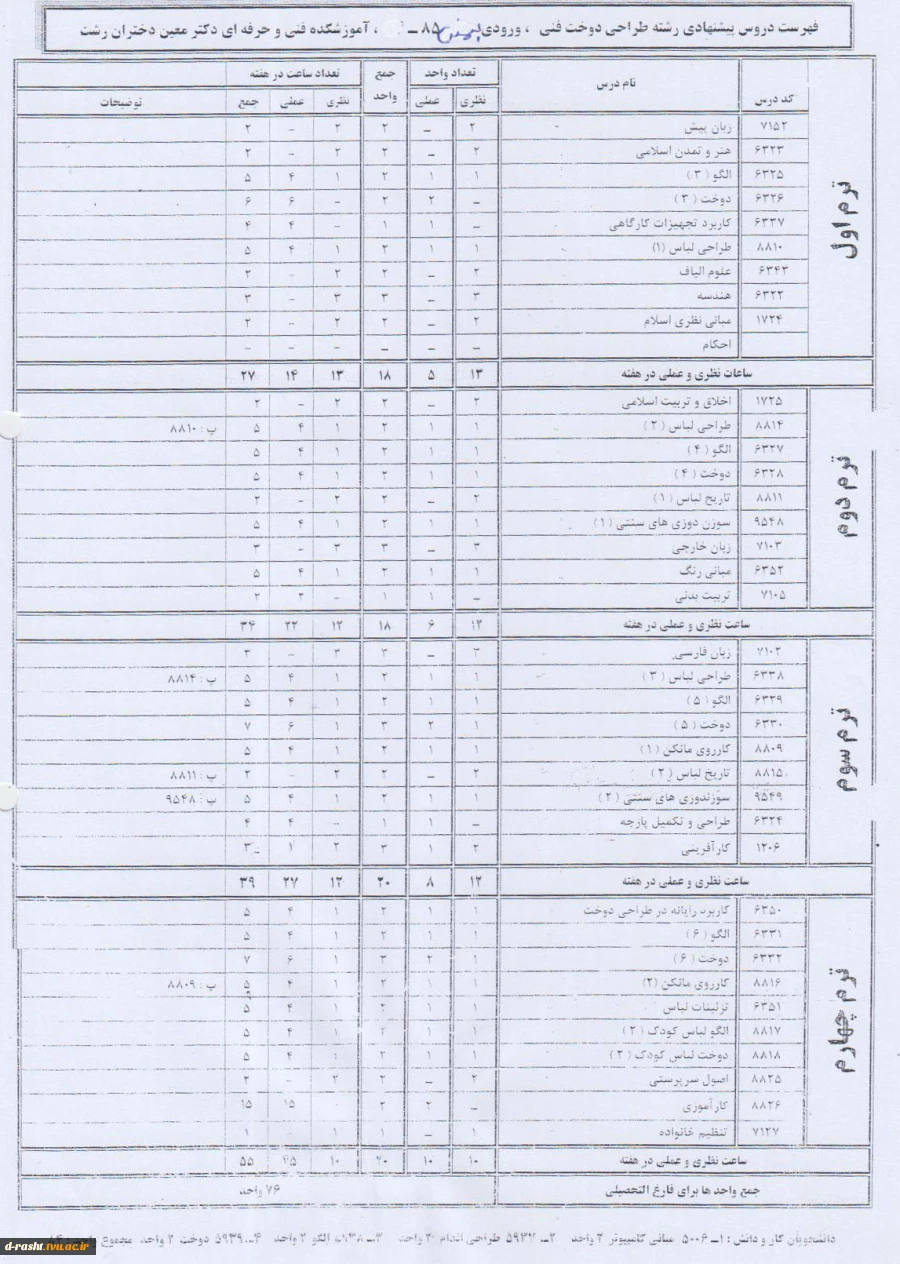 فهرست دروس پیشنهادی رشته طراحی دوخت فنی ، ورودی بهمن ۸۵ ، آموزشکده فنی و حرفه ای دکتر معین دختران رشت
کد درس نام درس تعداد واحد جمع واحد تعداد ساعت در هفته توضیحات
نظری عملی نظری عملی جمع
ترم اول
۷۱۵۲ زبان پیش ۲ – ۲ ۲ – ۲
۶۳۲۳ هنر و تمدن اسلامی ۲ – ۲ ۲ – ۲
۶۳۲۵ الگو ( ۳ ) ۱ ۱ ۲ ۱ ۴ ۵
۶۳۲۶ دوخت ( ۳ ) – ۲ ۲ – ۶ ۶
۶۳۳۷ کاربرد تجهیزات کارگاهی – ۱ ۱ – ۴ ۴
۸۸۱۰ طراحی لباس (۱) ۱ ۱ ۲ ۱ ۴ ۵
۶۳۴۳ علوم الیاف ۲ – ۲ ۲ – ۲
۶۳۲۲ هندسه ۳ – ۳ ۳ – ۳
۱۷۲۴ مبانی نظری اسلام ۲ – ۲ ۲ – ۲
احکام – – – – – –
ساعات نظری و عملی در هفته ۱۳ ۵ ۱۸ ۱۳ ۱۴ ۲۷
ترم دوم
۱۷۲۵ اخلاق و تربیت اسلامی ۲ – ۲ ۲ – ۲
۸۸۱۴ طراحی لباس ( ۲ ) ۱ ۱ ۲ ۱ ۴ ۵ پ : ۸۸۱۰
۶۳۲۷ الگو ( ۴ ) ۱ ۱ ۲ ۱ ۴ ۵
۶۳۲۸ دوخت ( ۴ ) ۱ ۱ ۲ ۱ ۴ ۵
۸۸۱۱ تاریخ لباس ( ۱ ) ۲ – ۲ ۲ – ۲
۹۵۴۸ سوزن دوزی های سنتی ( ۱ ) ۱ ۱ ۲ ۱ ۴ ۵
۷۱۰۳ زبان خارجی ۳ – ۳ ۳ – ۳
۶۳۵۲ مبانی رنگ ۱ ۱ ۲ ۱ ۴ ۵
۷۱۰۵ تربیت بدنی – ۱ ۱ – ۲ ۲
ساعت نظری و عملی در هفته ۱۲ ۶ ۱۸ ۱۲ ۲۲ ۳۴
ترم سوم
۷۱۰۲ زبان فارسی ۳ – ۳ ۳ – ۳
۶۳۳۸ طراحی لباس ( ۳ ) ۱ ۱ ۲ ۱ ۴ ۵ پ : ۸۸۱۴
۶۳۲۹ الگو ( ۵ ) ۱ ۱ ۲ ۱ ۴ ۵
۶۳۳۰ دوخت ( ۵ ) ۱ ۲ ۳ ۱ ۶ ۷
۸۸۰۹ کارروی مانکن ( ۱ ) ۱ ۱ ۲ ۱ ۴ ۵
۸۸۱۵ تاریخ لباس ( ۲ ) ۲ – ۲ ۲ – ۲ پ : ۸۸۱۱
۹۵۴۹ سوزندوزی های سنتی ( ۲ ) ۱ ۱ ۲ ۱ ۴ ۵ پ : ۹۵۴۸
۶۳۲۴ طراحی و تکمیل پارچه – ۱ ۱ – ۴ ۴
۱۲۰۶ کارآفرینی ۲ ۱ ۳ ۲ ۱ ۳
ساعت نظری و عملی در هفته ۱۲ ۸ ۲۰ ۱۲ ۲۷ ۳۹
ترم چهارم
۶۳۵۰ کاربرد رایانه در طراحی دوخت ۱ ۱ ۲ ۱ ۴ ۵
۶۳۳۱ الگو ( ۶ ) ۱ ۱ ۲ ۱ ۴ ۵
۶۳۳۲ دوخت ( ۶ ) ۱ ۲ ۳ ۱ ۶ ۷
۸۸۱۶ کارروی مانکن (۲) ۱ ۱ ۲ ۱ ۴ ۵ پ : ۸۸۰۹
۶۳۵۱ تزئینات لباس ۱ ۱ ۲ ۱ ۴ ۵
۸۸۱۷ الگو لباس کودک ( ۲ ) ۱ ۱ ۲ ۱ ۴ ۵
۸۸۱۸ دوخت لباس کودک ( ۲ ) ۱ ۱ ۲ ۱ ۴ ۵
۸۸۲۵ اصول سرپرستی ۲ – ۲ ۲ – ۲
۸۸۲۶ کارآموزی – ۲ ۲ ۱۵ ۱۵
۷۱۲۷ تنظیم خانواده ۱ – ۱ ۱ – ۱
ساعت نظری و عملی در هفته ۱۰ ۱۰ ۲۰ ۱۰ ۴۵ ۵۵
جمع واحد ها برای فارغ التحصیلی ۷۶ واحد
دانشجویان کار و دانش : ۱ـ ۵۰۰۶ مبانی کامپیوتر ۲ واحد ۲ـ طراحی اندام ۲ واحد ۳ـ الگو ۲ واحد ۴ـ ۵۹۳۹ دوخت ۲ واحد مجموع
d-rasht.tvu.ac.ir